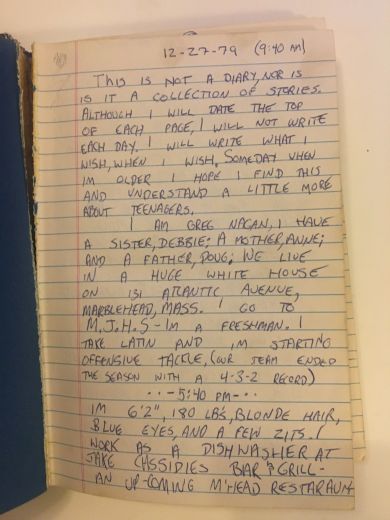 12-27-79 (9:40 AM)
THIS IS NOT A DIARY, NOR IS
IS IT A COLLECTION OF STORIES.
ALTHOUGH I WILL DATE THE TOP
OF EACH PAGE, I WILL NOT WRITE
EACH DAY. I WILL WRITE WHAT I
WISH, WHEN I WISH. SOMEDAY WHEN
IM OLDER I HOPE I FIND THIS
AND UNDERSTAND A LITTLE MORE
ABOUT TEENAGERS.
I AM GREG NAGAN, I HAVE
A SISTER, DEBBIE; A MOTHER, ANNE;
AND A FATHER, DOUG; WE LIVE
IN A HUGE WHITE HOUSE
ON 131 ATLANTIC AVENUE,
MARBLEHEAD, MASS. I GO TO
M.J.H.S - IM A FRESHMAN. I
TAKE LATIN AND IM STARTING
OFFENSIVE TACKLE, (OUR TEAM ENDED
THE SEASON WITH A 4-3-2 RECORD)
--5:40 PM--
IM 6'2", 180 LBS, BLONDE HAIR,
BLUE EYES, AND A FEW ZITS. I
WORK AS A DISHWASHER AT
JAKE CASSIDIES BAR & GRILL -
AN UP-COMING M'HEAD RESTARAUNT